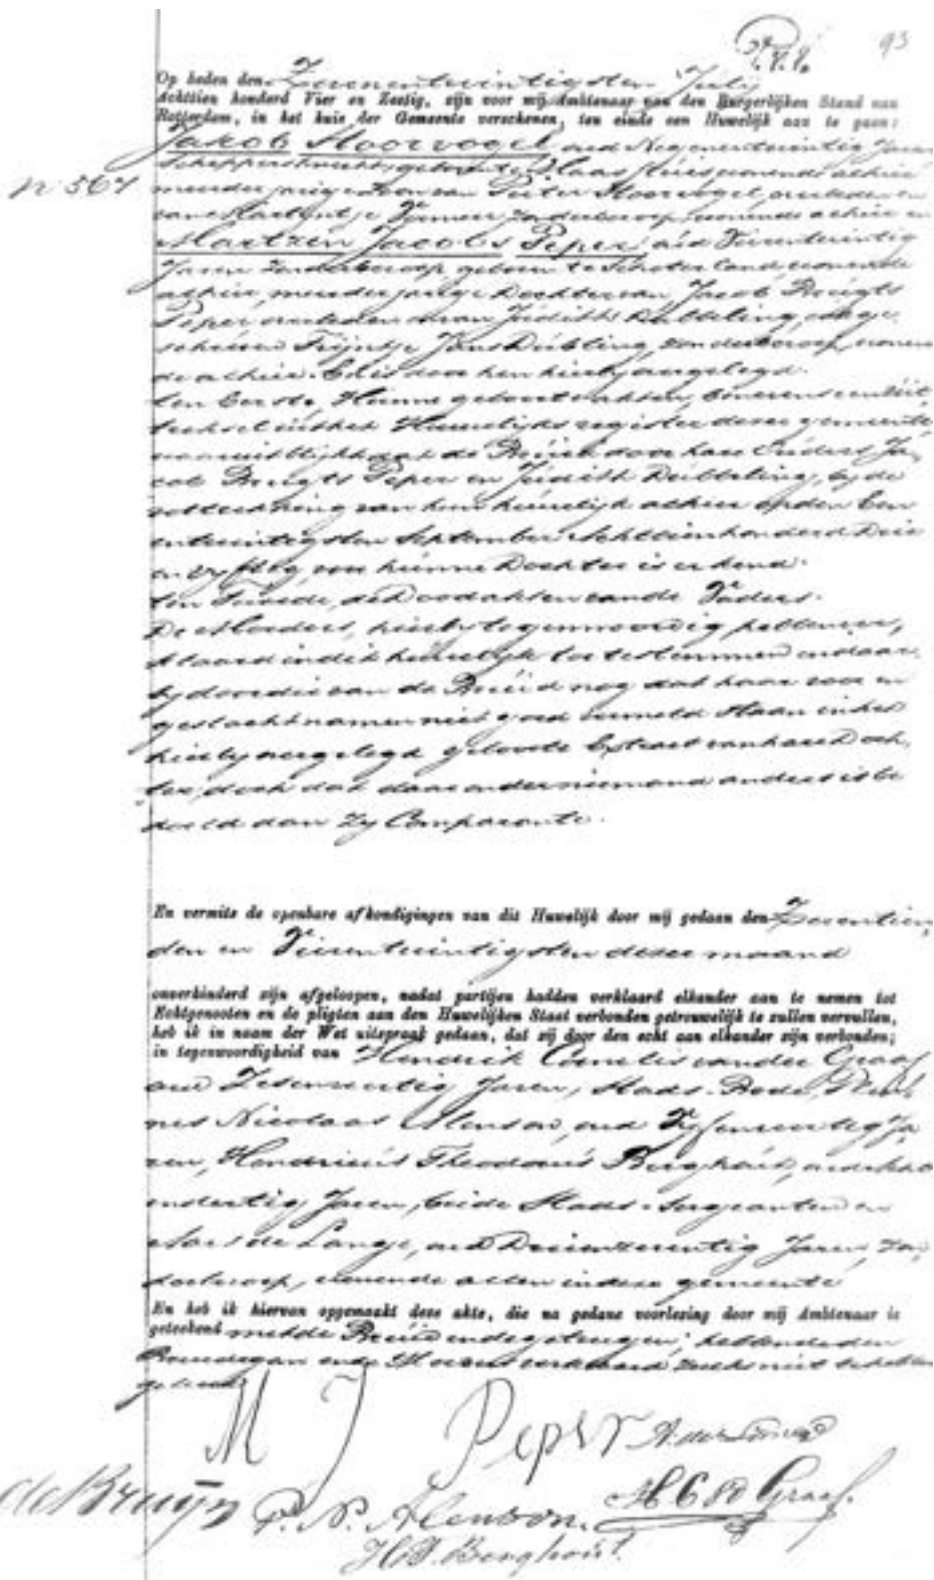 93
Op heden den Zevenentwintigsten July
Achttien honderd Vier en Zestig, zijn voor mij Ambtenaar van den Burgerlijken Stand van
Rotterdam, in het huis der Gemeente verschenen, ten einde een Huwelijk aan te gaan:
Jakob Hoorvogel, oud Negenentwintig Jaren
Scheppersknecht, geboren te Maassluis wonende alhier
no 567
meerderjarige Zoon van Pieter Hoorvogel, overleden en
van Vermeer, zonder beroep, wonende alhier en
Martzen Jacobs Peper, oud Vierentwintig
Jaren zonder beroep, geboren te Schoterland, wonende
alhier, meerderjarige Dochter van Jacob Bruigts
Peper overleden en van Judith Dubbeling,
Trijntje Jans Dubling, zonder beroep, wonen
de alhier. En is door hen hierbij aangelegd.
ten Eerste, Hunne geboorteakten, benevens een uit
treksel uit het Huwelijks register dezer gemeente
waaruit blijkt dat de Bruid door hare Ouders Ja
cob Bruigts Peper en Judith Dubbeling, by de
voltrekking van hun huwelijk alhier op den Een
entwintigsten September Achttienhonderd Drie
en vyftig, voor hunne Dochter is erkend.
ten Tweede, de Doodakten van de Vaders.
De Moeders, hierby tegenwoordig hebben,
verklaard in dit huwelyk toe te stemmen en daar
by door die van de Bruid nog dat haar voor en
geslachtnamen niet goed vermeld staan in het
hierby aangelegd geboorte Extract van hare Doch
ter, doch dat daar onder niemand anders is be
doeld dan Zy Comparante.
En vermits de openbare afkondigingen van dit Huwelijk door mij gedaan den Zeventien
den en Vierentwintigsten dezer maand
onverhinderd zijn afgeloopen, nadat partijen hadden verklaard elkander aan te nemen tot
Echtgenooten en de pligten aan den Huwelijken Staat verbonden getrouwelijk te zullen vervullen,
heb ik in naam der Wet uitspraak gedaan, dat zij door den echt aan elkander zijn verbonden;
in tegenwoordigheid van Hendrik Cornelis van der Graaf
oud Zesenveertig Jaren, Stads-Bode,
Nicolaas Alenson, oud Vyfenveertig Ja
ren, Hendricus Theodorus Berghout, oud
endertig Jaren, beide Stads-Sergeanten en
de Lange, oud Drieenzeventig Jaren, zon
der beroep, wonende allen in deze gemeente
En heb ik hiervan opgemaakt deze akte, die na gedane voorlezing door mij Ambtenaar is
geteekend met de Bruid en de getuigen; hebbende den
Bruidegom en de Moeders verklaard zulks niet te hebben
geleerd
M J Peper
de Bruyn P. N. Alenson. H C vd Graaf.
H.T. Berghout.